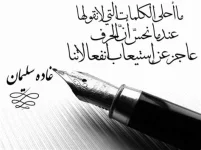 ما أحلى الكلمات التي لا نقولها
عندما نحسّ أنّ الحرف
عاجز عن استيعاب انفعالاتنا
غاده سليمان